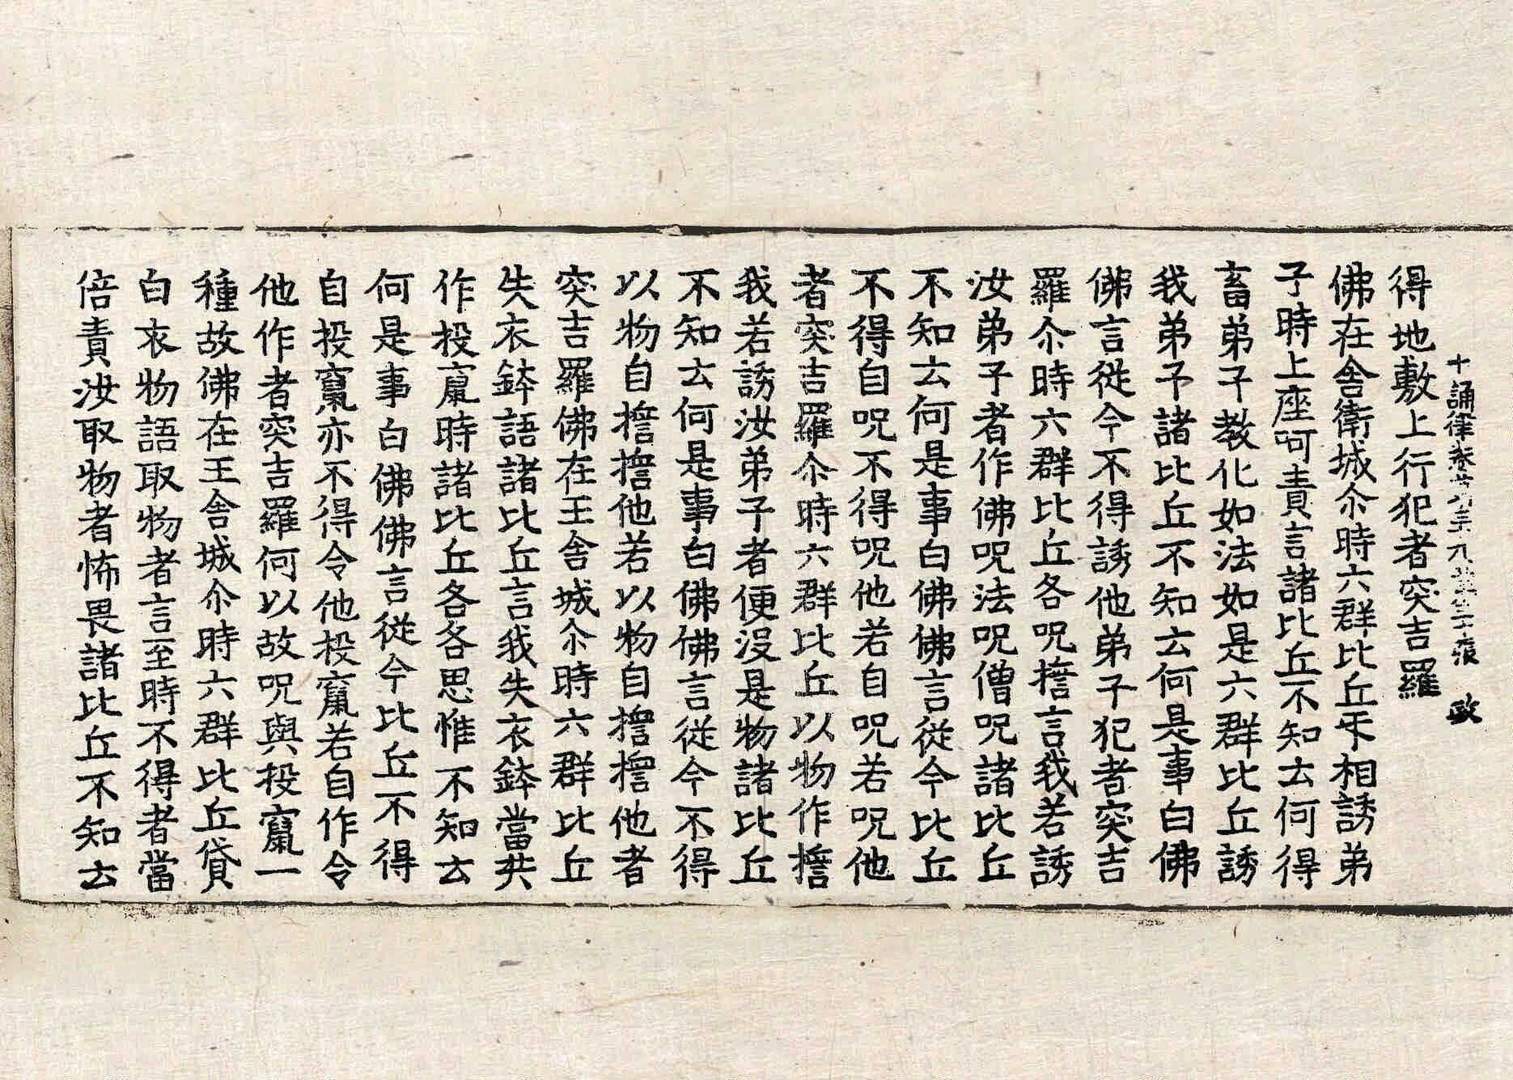 十誦律卷
得地敷上行犯者突吉羅
佛在舍衛城尒時六群比丘互相誘弟
子時上座呵責言諸比丘不知云何得
畜弟子教化如法如是六群比丘誘
我弟子諸比丘不知云何是事白佛
佛言從今不得誘他弟子犯者突吉
羅尒時六群比丘各呪擔言我若誘
汝弟子者作佛呪法呪僧呪諸比丘
不知云何是事白佛佛言從今比丘
不得自呪不得呪他若自呪若呪他
者突吉羅尒時六群比丘以物作擔
我若誘汝弟子者便沒是物諸比丘
不知云何是事白佛佛言從今不得
以物自擔擔他若以物自擔擔他者
突吉羅佛在王舍城尒時六群比丘
失衣鉢語諸比丘言我失衣鉢當共
作投竄時諸比丘各各思惟不知云
何是事白佛佛言從今比丘不得
自投竄亦不得令他投竄若自作令
他作者突吉羅何以故呪與投竄一
種故佛在王舍城尒時六群比丘貸
白衣物語取物者言至時不得者當
倍責汝取物者怖畏諸比丘不知云